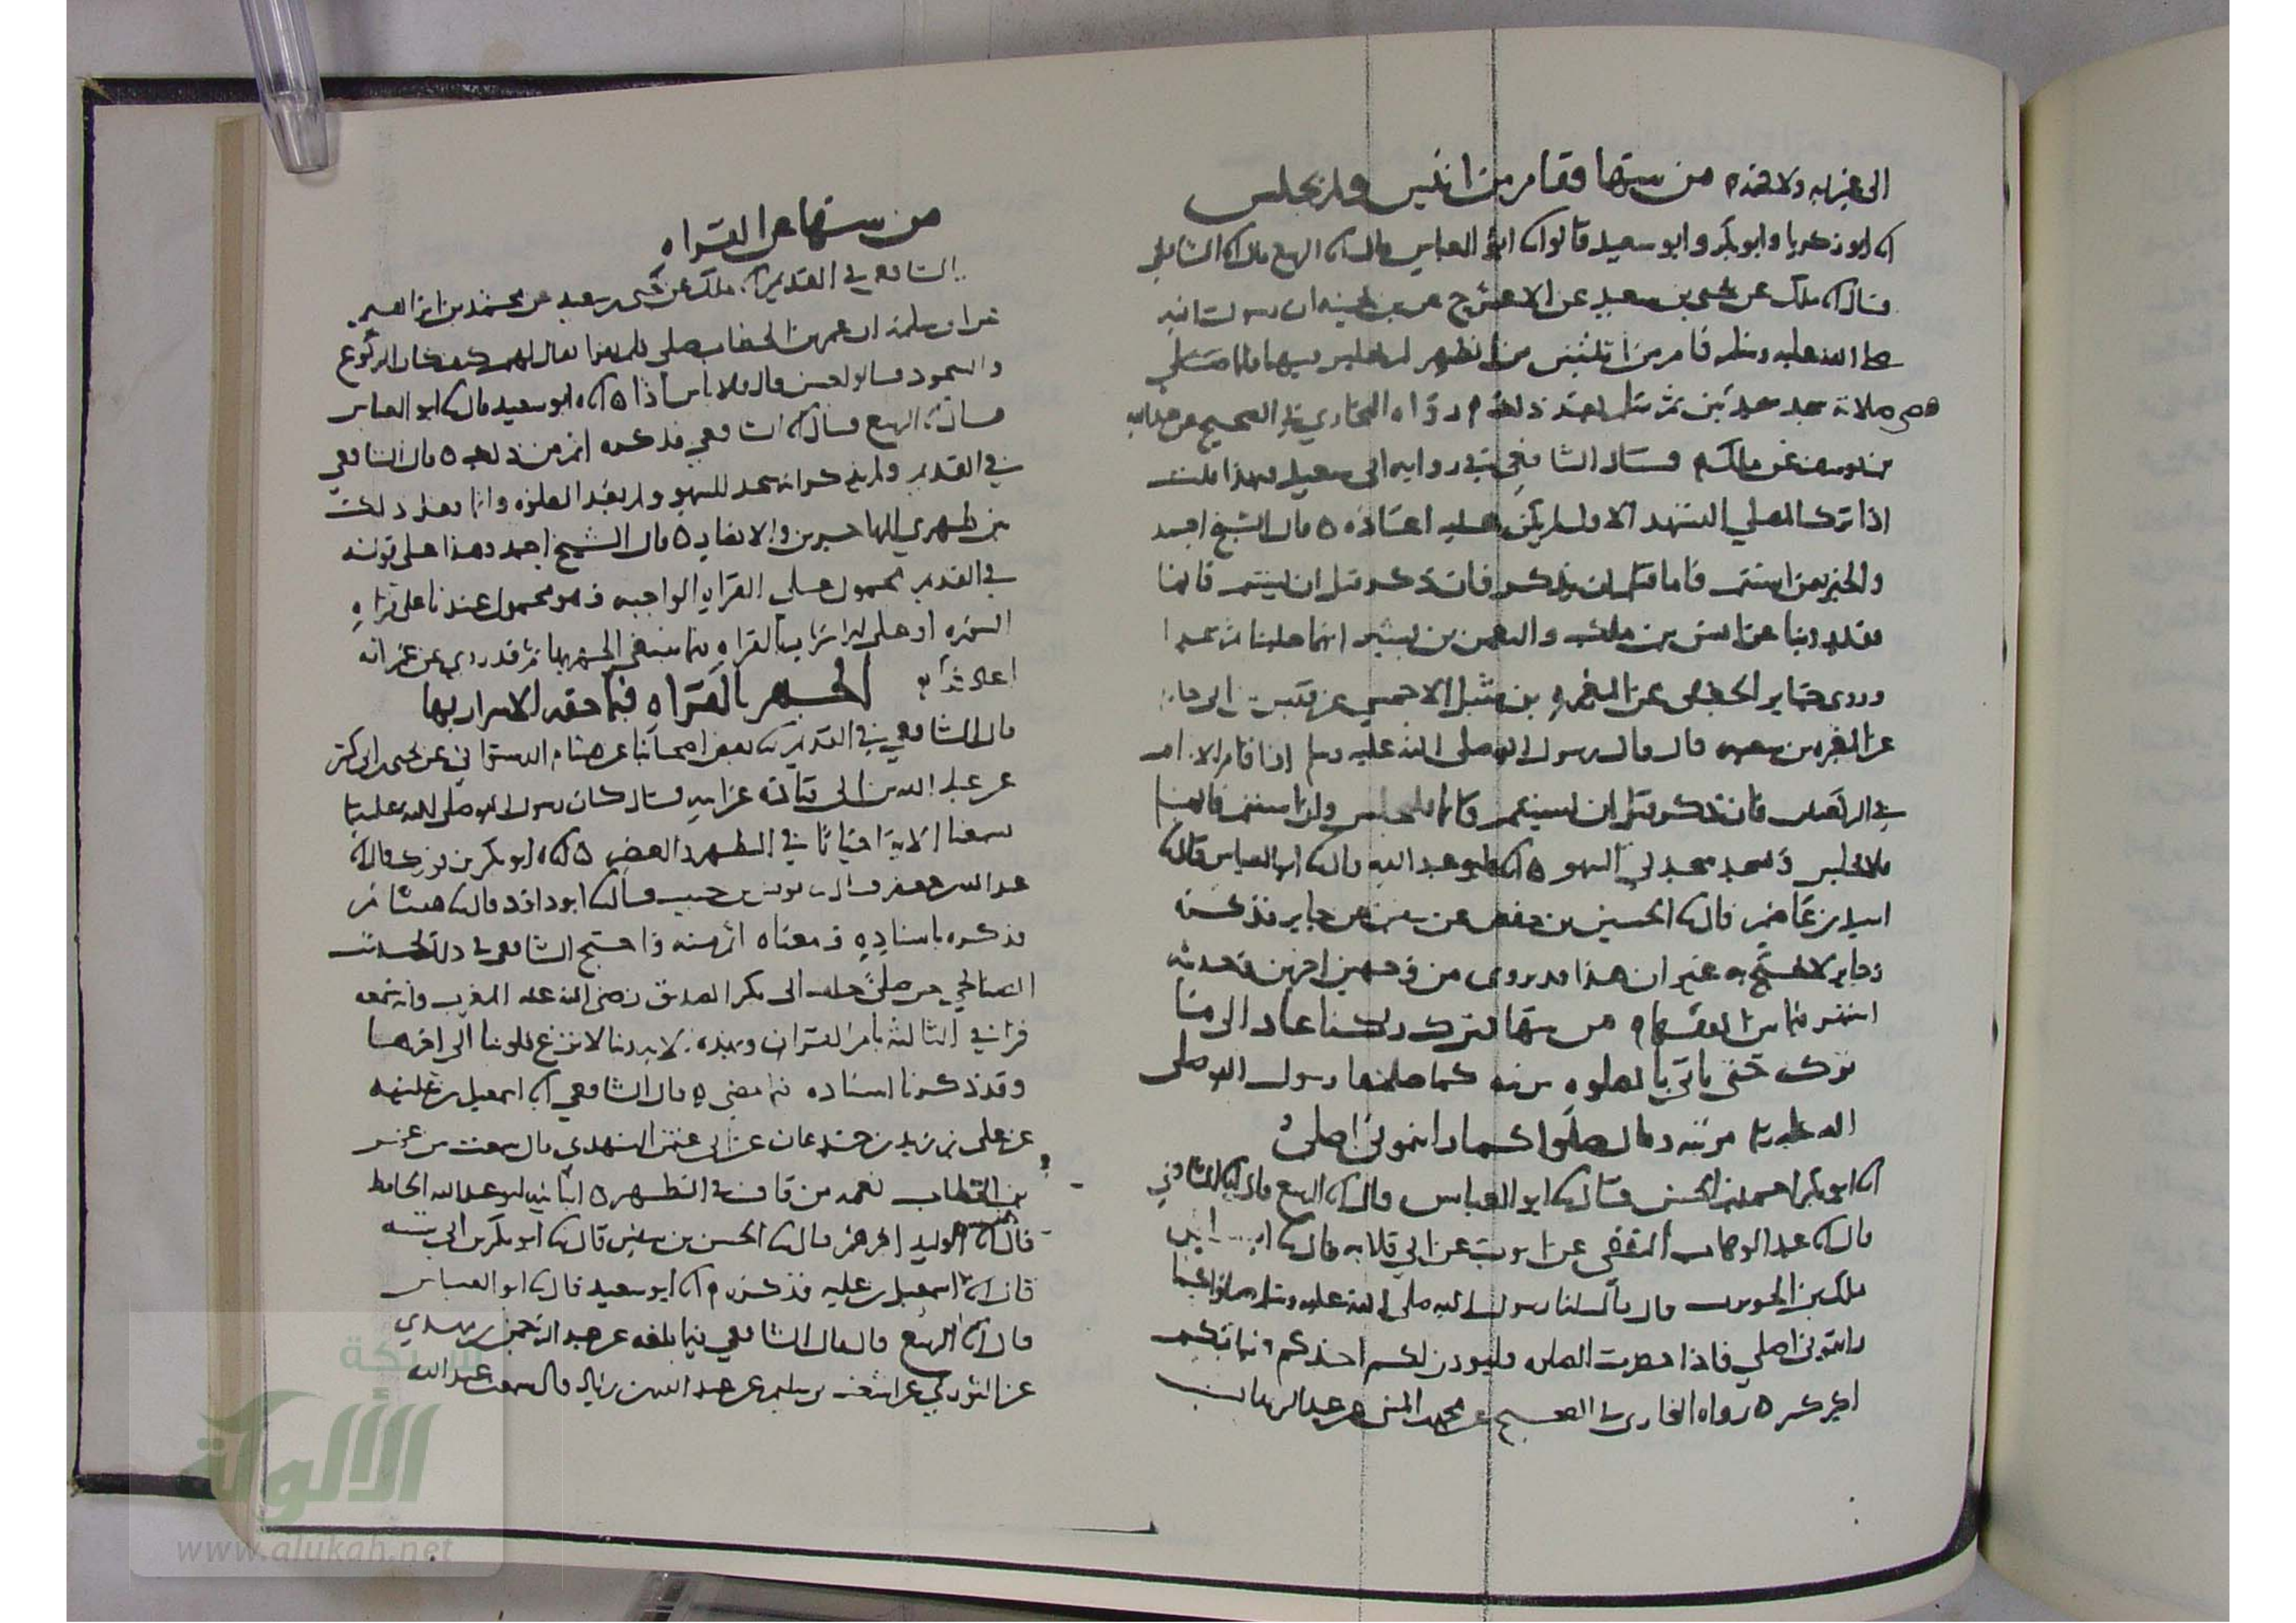 من سها فقام من اثنتين ولم يجلس
ابو زكريا وابو بكر وابو سعيد قالوا ابو العباس قال الربيع قال الشافعي
قال ملك عن يحيى بن سعيد عن الاعرج عن بن بحينه ان رسول الله
صلى الله عليه وسلم قام من اثنتين من الظهر لم يجلس فيهما فلما
قضى صلاته سجد سجدتين ثم سلم بعد ذلك رواه البخاري في الصحيح عن عبد الله
بن يوسف عن ملك قال الشافعي في روايه ابي سعيد فبهذا قلت
اذا ترك المصلي التشهد الاول لم يكن عليه اعاده قال الشيخ احمد
فان ذكر قبل ان يستتم قائما
روينا عن انس بن ملك والنعمن بن بشير انهما
وروى جابر الجعفي عن المغيره بن شبيل الاحمسي عن قيس بن ابي حازم
عن المغيره بن شعبه قال قال رسول الله صلى الله عليه وسلم اذا قام الامام
في الركعتين فان ذكر قبل ان يستتم قائما فليجلس وان استتم قائما
فلا يجلس ويسجد سجدتي السهو ابو عبد الله قال ابو العباس قال
اسيد بن عاصم قال الحسين بن حفص عن سفين عن جابر فذكره
وجابر لا يحتج به غير ان هذا قد يروى من وجهين اخرين وحديثه
من سها فترك ركنا عاد الى ما
ترك حتى ياتي بالصلوه مرتبه كما صلاها رسول الله صلى
الله عليه وسلم مرتبه وقال صلوا كما رايتموني اصلي
ابو بكر احمد بن الحسن قال ابو العباس قال الربيع قال الشافعي
قال عبد الوهاب الثقفي عن ايوب عن ابي قلابه قال
ملك بن الحويرث قال قال لنا رسول الله صلى الله عليه وسلم صلوا كما
رايتموني اصلي فاذا حضرت الصلاه فليوذن لكم احدكم وليؤمكم
اكبركم رواه البخاري في الصحيح عن محمد بن المثنى عن عبد الوهاب
من سها عن القراه
الشافعي في القديم ملك عن يحيى بن سعيد عن محمد بن ابرهيم
عن ابي سلمه ان عمر بن الخطاب صلى فلم يقرا فقال لهم كيف كان الركوع
والسجود قالوا حسن قال فلا باس اذا ابو سعيد قال ابو العباس
قال الربيع قال الشافعي فذكره اتم من ذلك قال الشافعي
في القديم ولم يذكر انه سجد للسهو ولم يعد الصلوه وانما فعل ذلك
بين ظهري المهاجرين والانصار قال الشيخ احمد وهذا على قوله
في القديم محمول على القراه الواجبه وهو محمول عندنا على قراه
السوره او على الاسرار بالقراه فيما ينبغي الجهر بها ثم قد روي عن عمر انه
اعادها
الجهر بالقراه فيما حقه الاسرار بها
قال الشافعي في القديم بعض اصحابنا عن هشام الدستوائي عن يحيى بن ابي كثير
عن عبد الله بن ابي قتاده عن ابيه قال كان رسول الله صلى الله عليه وسلم
يسمعنا الايه احيانا في الظهر والعصر ابو بكر بن فورك قال
عبد الله بن جعفر قال يونس بن حبيب قال ابو داود قال هشام
فذكره باسناده ومعناه اتم منه واحتج الشافعي في ذلك بحديث
الصنابحي حين صلى خلف ابي بكر الصديق رضى الله عنه المغرب وانه سمعه
قرا في الثالثه بام القران وبهذه الايه ربنا لا تزغ قلوبنا الى اخرها
وقد ذكرنا اسناده فيما مضى قال الشافعي اسمعيل بن عليه
عن علي بن زيد بن جدعان عن ابي عثمن النهدي قال سمعت من عمر
بن الخطاب نغمه من قاف في الظهر ابو عبد الله الحافظ
قال ابو الوليد قال الحسن بن سفين قال ابو بكر بن ابي شيبه
قال اسمعيل بن عليه فذكره ابو سعيد قال ابو العباس
قال الربيع قال قال الشافعي فيما بلغه عن عبد الرحمن بن مهدي
عن الثوري عن اشعث بن سليم عن عبد الله بن زياد قال سمعت عبد الله
شبكة
الألوكة
www.alukah.net